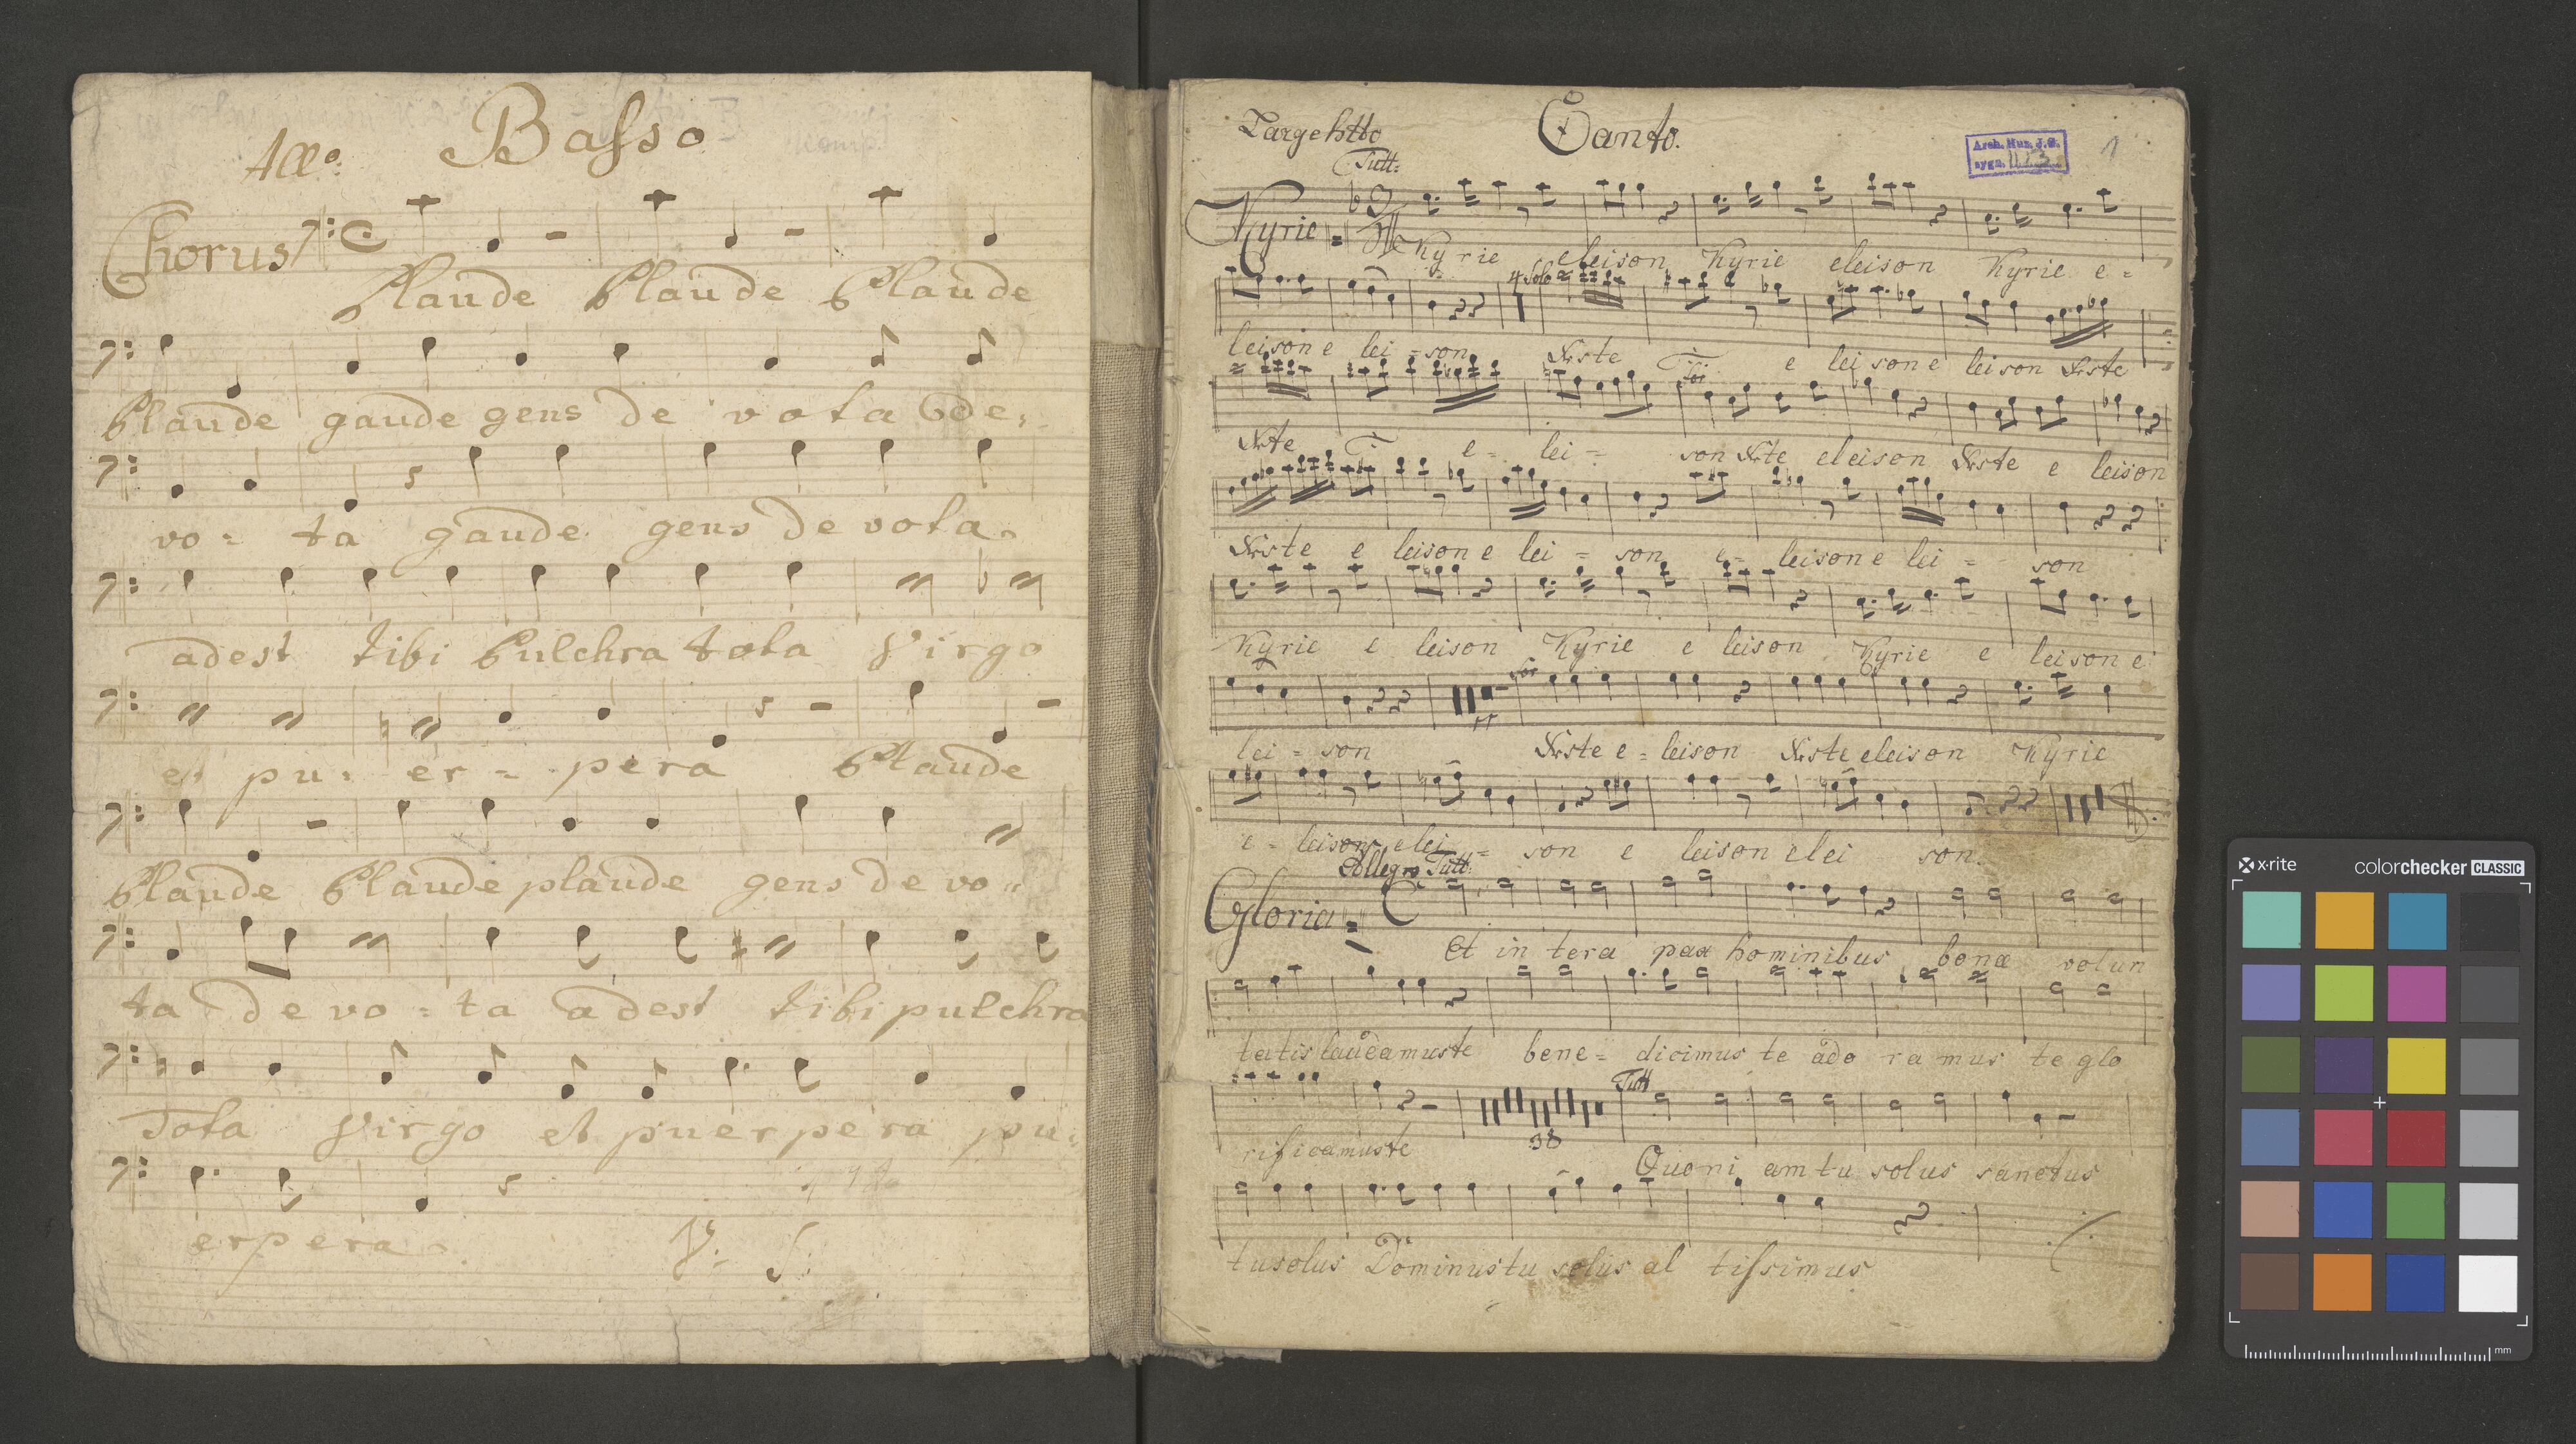 Basso
Allo:
Chorus
Plaude Plaude Plaude
Plaude gaude gens de vota de„
vo= ta gaude gens devota.
adest tibi Pulchra tota Virgo
et pu= er=- pera Plaude
Plaude Plaude plaude gens de vo„
ta de vo=ta adest tibi pulchra
Tota Virgo et puerpera pu„
erpera.
V: S:
Canto.
Largehtto
Tutt:
Arch. Muz. J.G.
sygn. II/3
1
Kyrie
Kyrie eleison Kyrie eleison Kyrie e=
4 Solo
leison e lei=son Xste e leison e leison Xste
Xste e= lei= son Xste eleison Xste e leison
Xste e leison e lei= son e= leison e lei= son
Kyrie e leison Kyrie e leison Kyrie e leison e
lei= son Xste e=leison Xste eleison Kyrie
e= leison elei= son e leison elei son.
Allegro Tutt:
Gloria
Et in tera pax hominibus bonæ volun
tatis laudamuste bene= dicimus te ado ramus te glo
Tutt
rificamuste 38 Quoni am tu solus sanctus
tusolus Dominustu solus al tissimus
x-rite colorchecker CLASSIC
mm